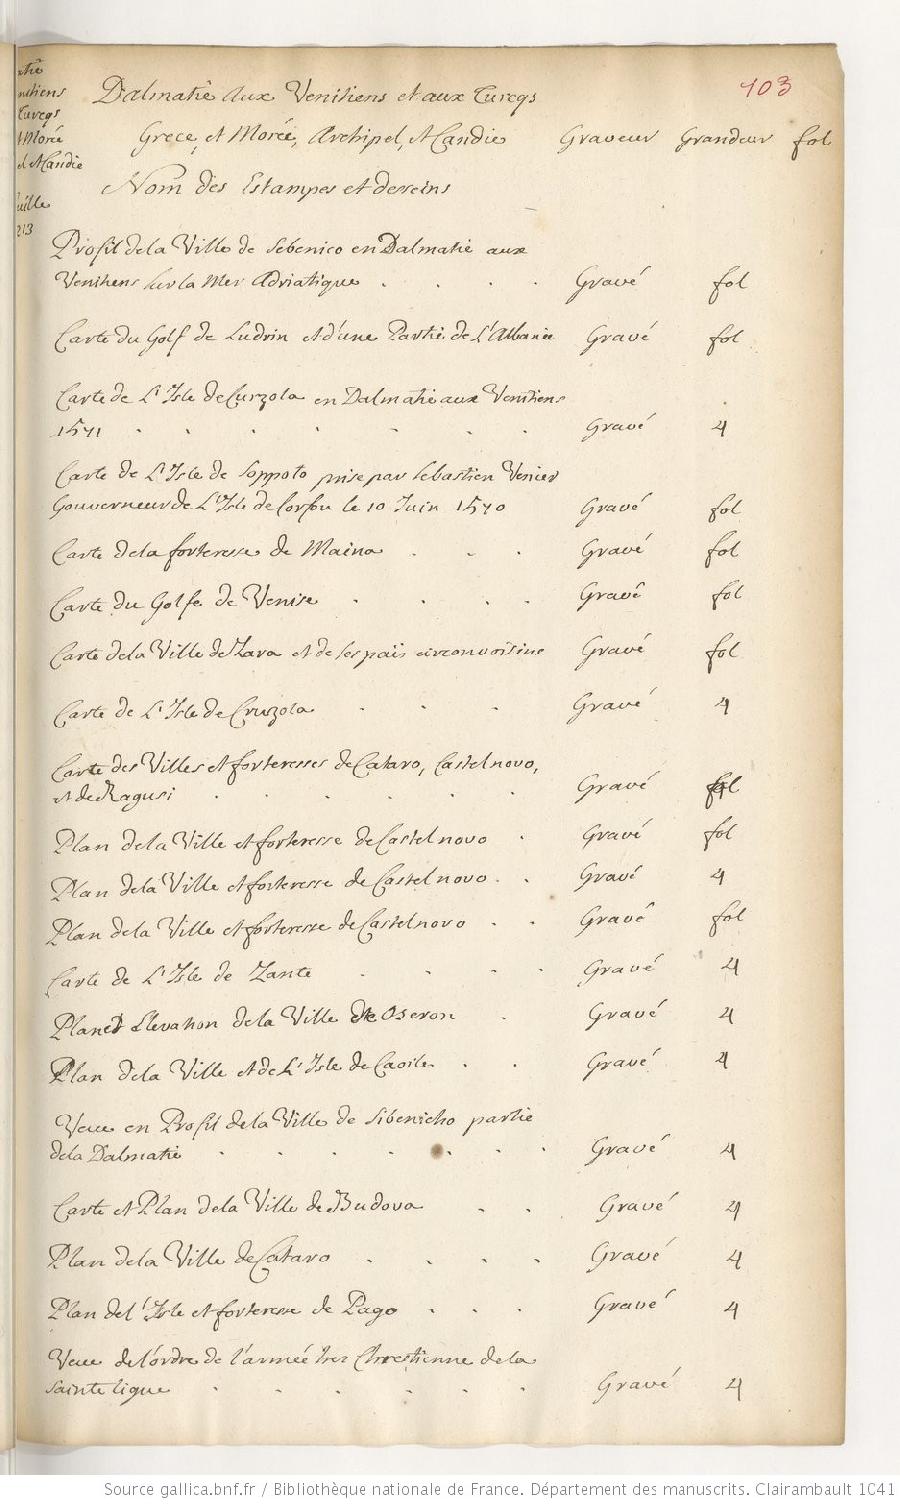 103
Dalmatie aux Venitiens et aux Turcqs
Grece, et Morée, Archipel, et Candie Graveur Grandeur fol
Nom des Estampes et desseins
Profil dela Ville de Sebenico en Dalmatie aux
Venitiens sur la Mer Adriatique . . . . Gravé fol
Carte du Golf de Ludrin et d'une Partie de L'Albanie Gravé fol
Carte de L'Isle de Curzola en Dalmatie aux Venitiens
1571 . . . . . . Gravé 4
Carte de L'Isle de Soppoto prise par Sebastien Venier
Gouverneur de L'Isle de Corfou le 10 Juin 1570 Gravé fol
Carte dela forteresse de Maina . . . Gravé fol
Carte du Golfe de Venise . . . . Gravé fol
Carte dela Ville de Zara et de ses pais circonvoisins Gravé fol
Carte de L'Isle de Cruzola . . . Gravé 4
Carte des Villes et forteresses de Cataro, Castelnovo,
et de Ragusi . . . . . . Gravé fol
Plan dela Ville et forteresse de Castelnovo . Gravé fol
Plan dela Ville et forteresse de Castelnovo . . Gravé 4
Plan dela Ville et forteresse de Castelnovo . . Gravé fol
Carte de L'Isle de Zante . . . . Gravé 4
Plan et Elevation dela Ville de Oseron . Gravé 4
Plan dela Ville et de L'Isle de Caoile . . Gravé 4
Veue en Profil dela Ville de Sibenicho partie
dela Dalmatie . . . . . . Gravé 4
Carte et Plan dela Ville de Budova . . Gravé 4
Plan dela Ville de Cataro . . . . Gravé 4
Plan de l'Isle et forteresse de Pago . . . Gravé 4
Veue de l'ordre de l'armée tres Chrestienne dela
Sainte ligue . . . . . . Gravé 4
Source gallica.bnf.fr / Bibliothèque nationale de France. Département des manuscrits. Clairambault 1041